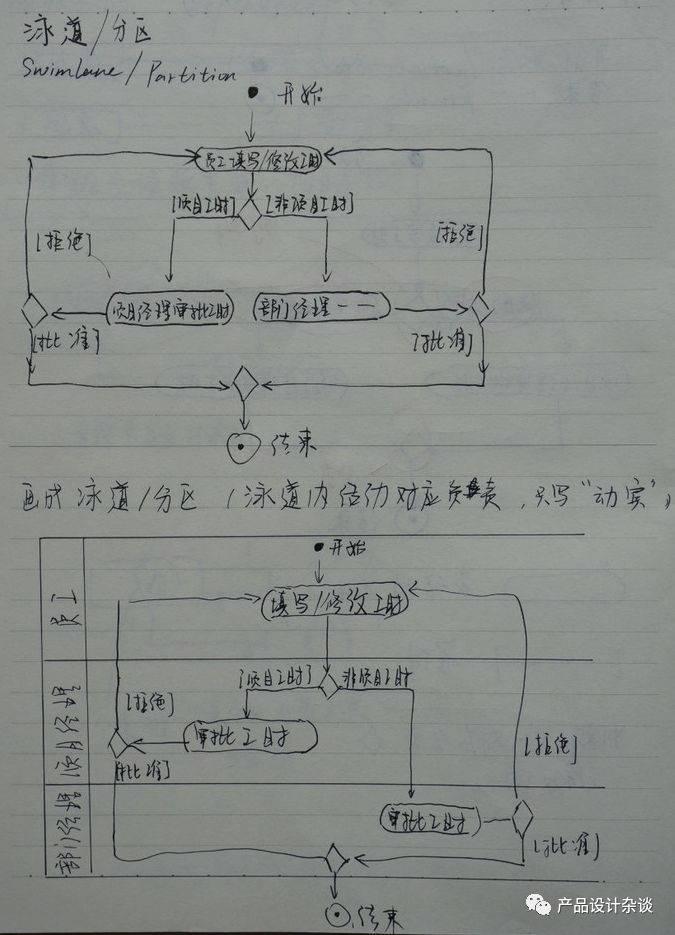 泳道/分区
Swimlane/Partition
开始
员工填写/修改工时
[项目工时] [非项目工时]
[拒绝] [拒绝]
项目经理审批工时 部门经理一一
[批准] [批准]
结束
画成泳道/分区（泳道内活动对应负责，只写“动宾”）
开始
员工
填写/修改工时
[项目工时] 非项目工时
项目经理
[拒绝]
审批工时
[拒绝]
[批准]
部门经理
审批工时
[批准]
结束
产品设计杂谈